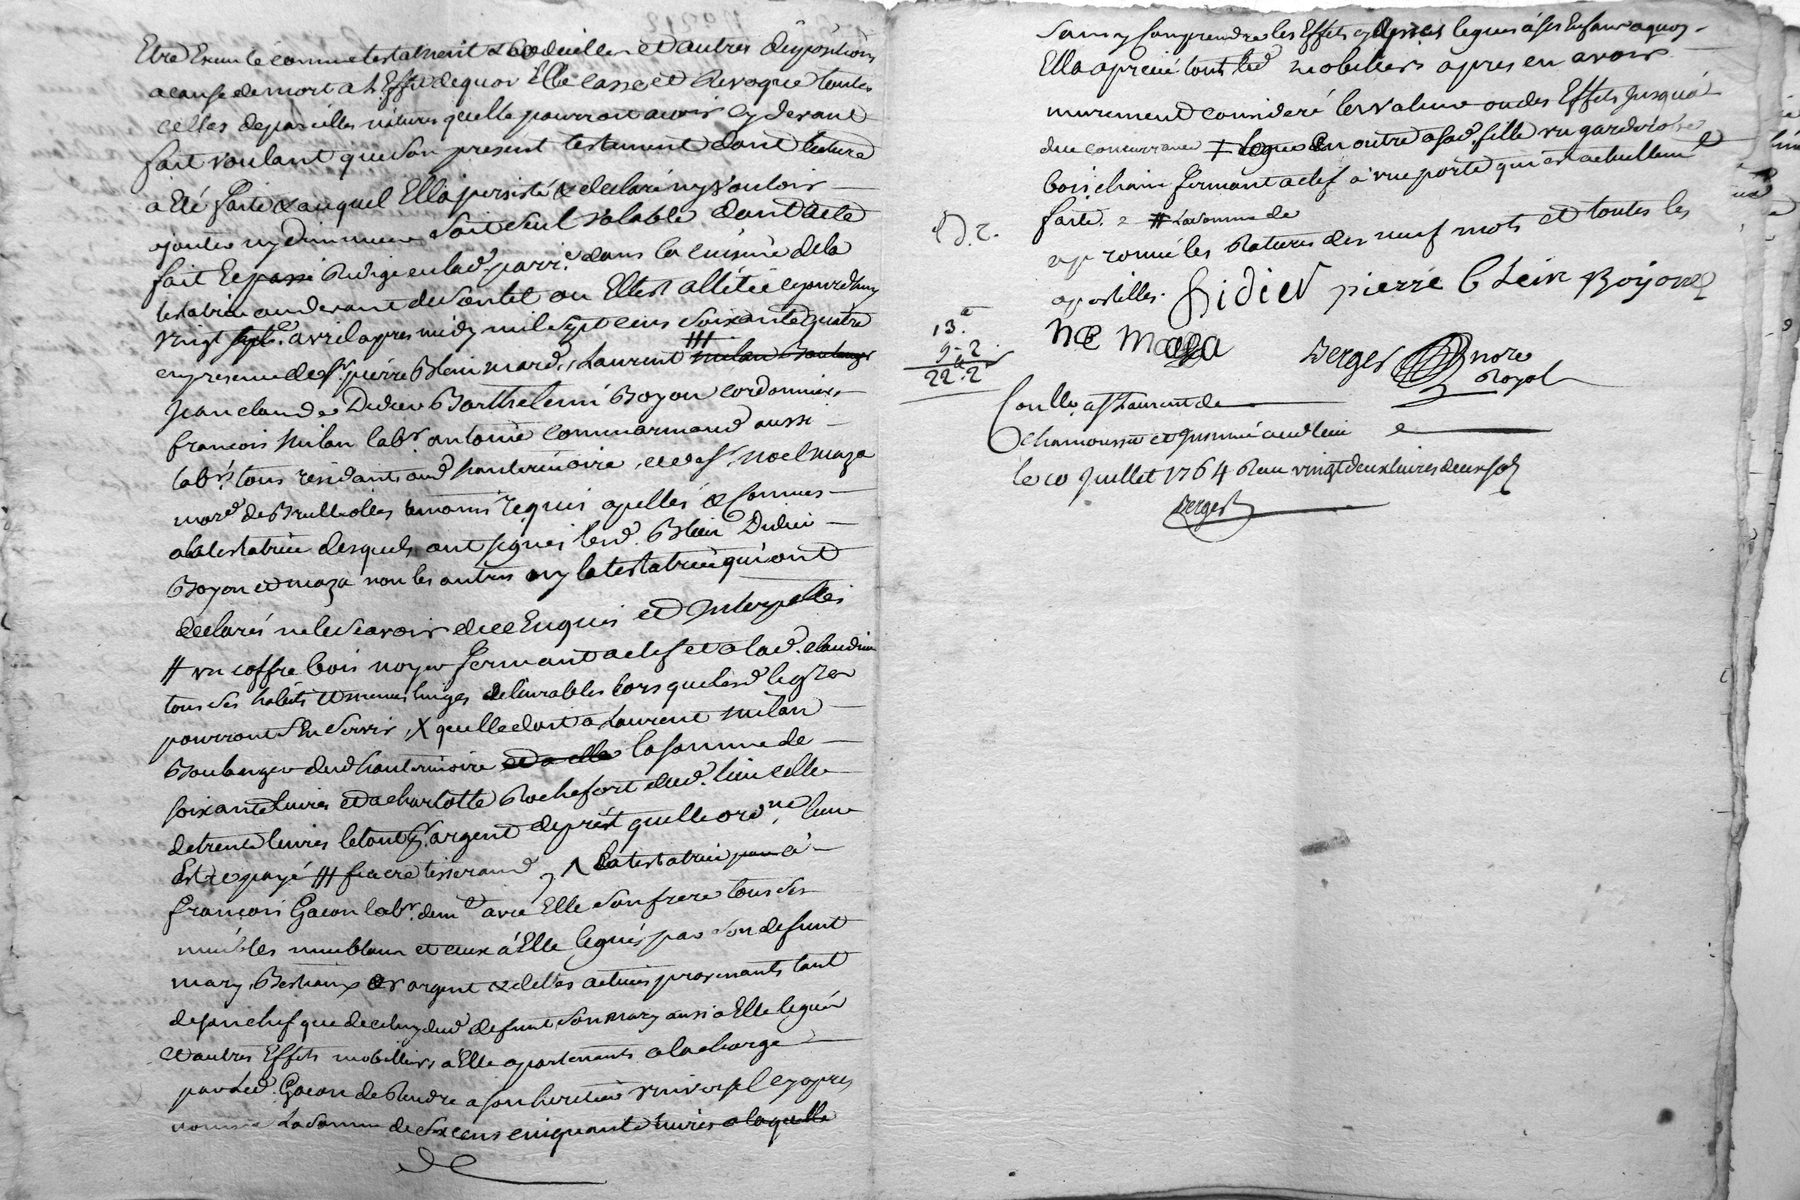 Etre Executé comme testament codicille et autres dispositions
a cause de mort a l'Effet de quoi Elle casse et Revoque toutes
celles de pareilles natures quelle pourroit avoir cy devant
fait voulant que son present testament dont lecture
a Eté faite & auquel Ella persisté & declaré n'y vouloir
ajouter ny diminuer soit seul valable dont acte
fait Et passé Redigé en lad. parr.e dans la cuisine de la
testatrice au devant de son lit ou Elle est allitée cejourdhuy
vingt sept.e avril apres midy mil sept cens soixante quatre
en presence de s.r pierre Blein mard., Laurent /// milan Boulanger
jean claude Didier Barthelemi Boyon cordonnier,
françois Milan lab.r antoine commarmand aussi
lab.r, tous residants aud hauterivoire, et de s.r noel maza
mard de Brullioles temoins requis apellés & connus
a la testatrice desquels ont signés lesd. Blein Didier
Boyon et maza non les autres ny la testatrice qui ont
declarés ne le scavoir de ce Enquis et Interpellés
# un coffre bois noyer fermant a clef et a lad. claudine
tous ses habits et menus linges delivrables lorsque lesd legs
pourront s'En servir, X quelle doit a Laurent milan
Boulanger dud hauterivoire et a elle la somme de
soixante livres et a charlotte Rochefort dud. lieu celle
de trente livres le tout pr argent de prêt quelle ord.ne leur
Estre payé /// fiacre tisserand , ^ La testatrice pour a
françois Gacon lab.r dem.t avec Elle son frere tous ses
meubles meublans et ceux à Elle legués par son defunt
mary, Bestiaux or argent & dettes actives provenants tant
de son chef que de celuy dud defunt son mary aussi a Elle legué
Et autres Effets mobilliers a Elle apartenants a la charge
par led. Gacon de Rendre a son heritier universel cy apres
nommé La somme de six cens cinquante livres a laquelle
sans y comprendre les Effets cy dessus legués à ses Enfans a quoy
Ella aprecié tous sesd mobiliers apres en avoir
murement consideré la valeur ou des Effets jusqu'à
due concurrance ‡ legue En outre a sad. fille un garderobe
bois chaine fermant a clef à une porte qui est actuellem.t
faite. # La somme de
aprouvé les Ratures des neuf mots et toutes les
apostilles. Didier pierre blein Boyon
NOE Maza
Berger nore
Royal
13.#
9-2
22#.2
Conllé. a St Laurent de
chamousset et Insinué aud lieu
le 10 Juillet 1764 Reçu vingt deux livres deux sols
Berger